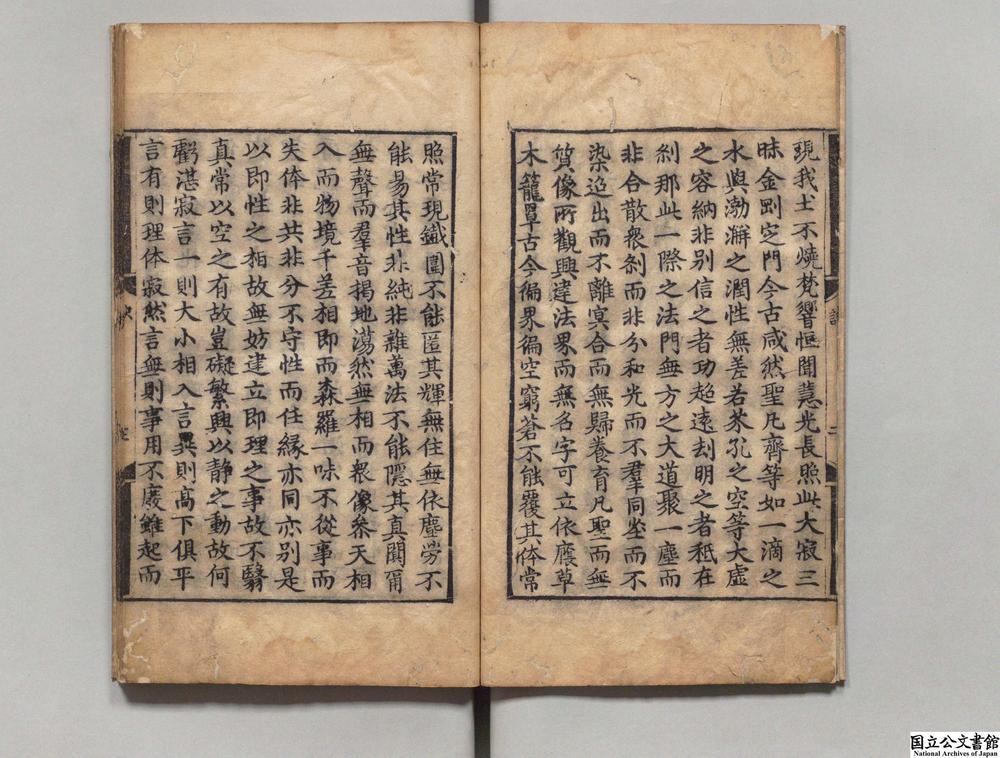 覩我土不燒梵響恒聞慧光長照此大寂三
昧金剛定門今古咸然聖凡齊等如一滴之
水與渤澥之潤性無差若芥孔之空等大虛
之容納非别信之者功超遠刦明之者秖在
刹那此一際之法門無方之大道聚一塵而
非合散衆刹而非分和光而不羣同塵而不
染迢出而不離冥合而無歸養育凡聖而無
質像可觀興建法界而無名字可立依廕草
木籠罩古今徧界徧空穹蒼不能覆其体常
照常現鐵圍不能匿其輝無住無依塵勞不
能易其性非純非雜萬法不能隱其真闃爾
無聲而羣音揭地蕩然無相而衆像叅天相
入而物境千差相即而森羅一味不從事而
失体非共非分不守性而任緣亦同亦别是
以即性之相故無妨建立即理之事故不翳
真常以空之有故豈礙繁興以静之動故何
虧湛寂言一則大小相入言異則髙下俱平
言有則理体寂然言無則事用不廢雖起而
国立公文書館
National Archives of Japan